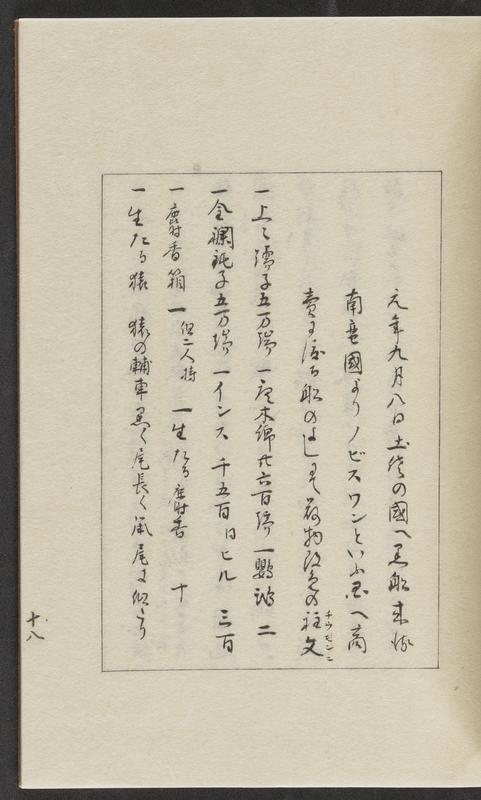 元年九月八日土佐の國へ黒船来ル
南蛮國よりノビスワンといふ國へ商
賣に渡る船のよしにて荷物改色の註文
チウモンニ
一上々繻子五万端 一唐木綿廿六百端 一鸚鵡 二
一金襴純子五万端 一インス 千五百 日ヒル 三百
一麝香箱 一 但二人持 一生たる麝香 十
一生たる猿 猿の輔車黒く尾長く鼠尾に似たり
十八